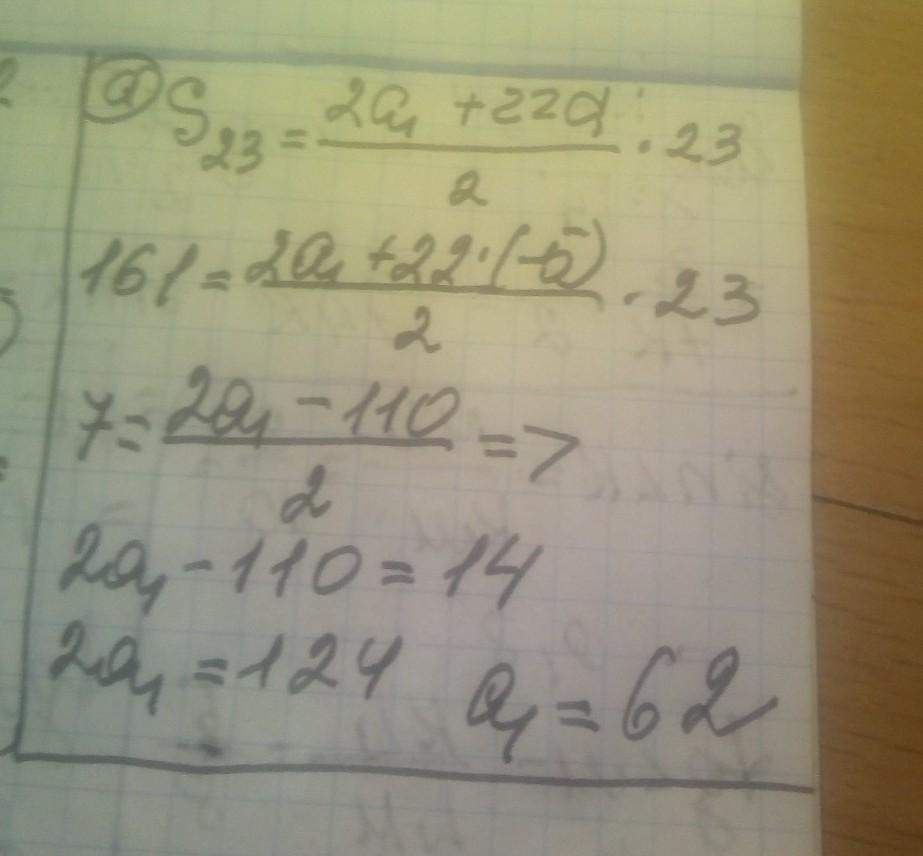 а) S₂₃ = (2a₁ + 22d)/2 · 23
161 = (2a₁ + 22·(-5))/2 · 23
7 = (2a₁ - 110)/2 =>
2a₁ - 110 = 14
2a₁ = 124 a₁ = 62